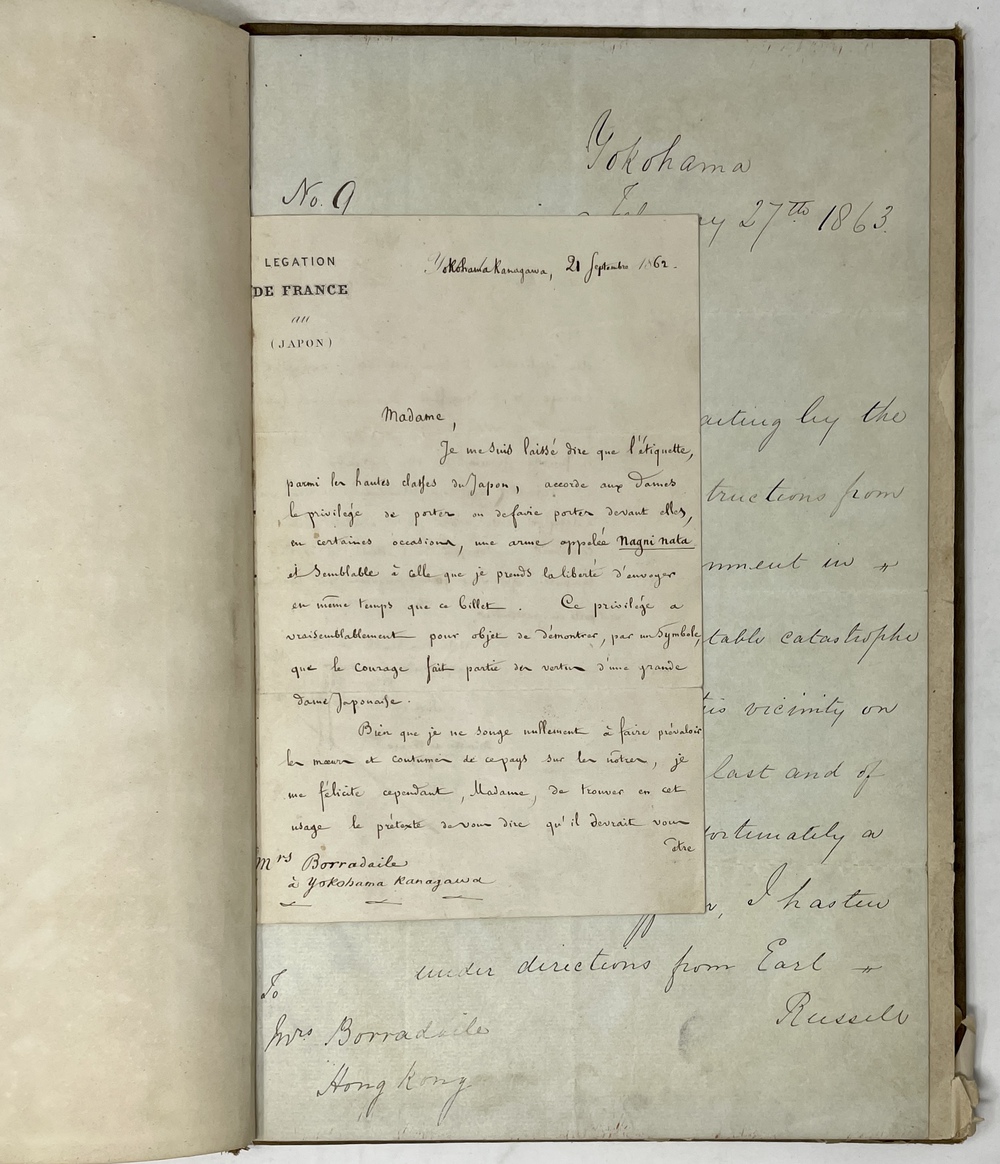 Yokohama
No. 9
27th 1863.
LEGATION
DE FRANCE
au
(JAPON)
Yokohama Kanagawa, 21 Septembre 1862.
Madame,
Je me suis laissé dire que l'étiquette,
parmi les hautes classes du Japon, accorde aux Dames
le privilége de porter ou de faire porter devant elles,
en certaines occasions, une arme appelée Nagni nata
et semblable à celle que je prends la liberté d'envoyer
en même temps que ce billet. Ce privilége a
vraisemblablement pour objet de démontrer, par un symbole,
que le courage fait partie des vertus d'une grande
dame Japonaise.
Bien que je ne songe nullement à faire prévaloir
les mœurs et coutumes de ce pays sur les nôtres, je
me félicite cependant, Madame, de trouver en cet
usage le prétexte de vous dire qu'il devrait vous
être
Mrs Borradaile
à Yokohama Kanagawa
by the
from
in "
catastrophe
vicinity on
last and of
a
I hasten
under directions from Earl "
Russell
To
Mrs Borradaile
Hong Kong